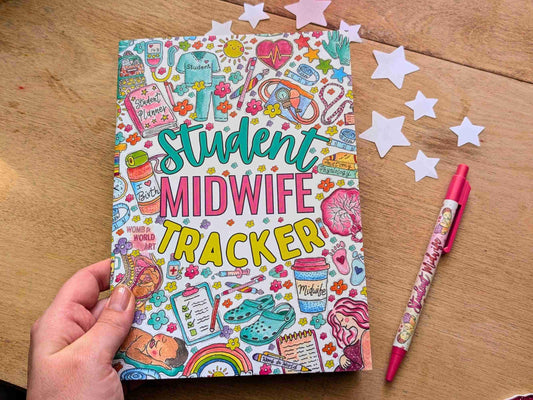 Student
Student
Planner
Student
MIDWIFE
TRACKER
Birth
WOMB &
WORLD
ART
Midwife